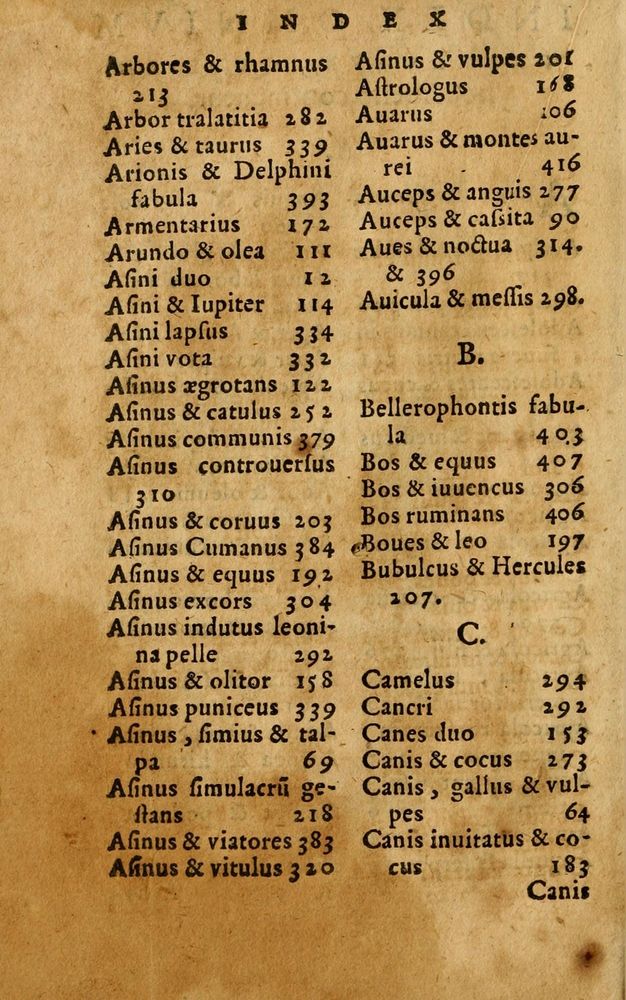 INDEX
Arbores & rhamnus
213
Arbor tralatitia 282
Aries & taurus 339
Arionis & Delphini
fabula 393
Armentarius 172
Arundo & olea 111
Aſini duo 12
Aſini & Iupiter 114
Aſini lapſus 334
Aſini vota 332
Aſinus ægrotans 122
Aſinus & catulus 252
Aſinus communis 379
Aſinus controuerſus
310
Aſinus & coruus 203
Aſinus Cumanus 384
Aſinus & equus 192
Aſinus excors 304
Aſinus indutus leoni-
na pelle 292
Aſinus & olitor 158
Aſinus puniceus 339
Aſinus, ſimius & tal-
pa 69
Aſinus ſimulacrũ ge-
ſtans 218
Aſinus & viatores 383
Aſinus & vitulus 320
Aſinus & vulpes 201
Aſtrologus 168
Auarus 106
Auarus & montes au-
rei 416
Auceps & anguis 277
Auceps & caſsita 90
Aues & noctua 314.
& 396
Auicula & meſſis 298.
B.
Bellerophontis fabu-
la 403
Bos & equus 407
Bos & iuuencus 306
Bos ruminans 406
Boues & leo 197
Bubulcus & Hercules
207.
C.
Camelus 294
Cancri 292
Canes duo 153
Canis & cocus 273
Canis, gallus & vul-
pes 64
Canis inuitatus & co-
cus 183
Canis